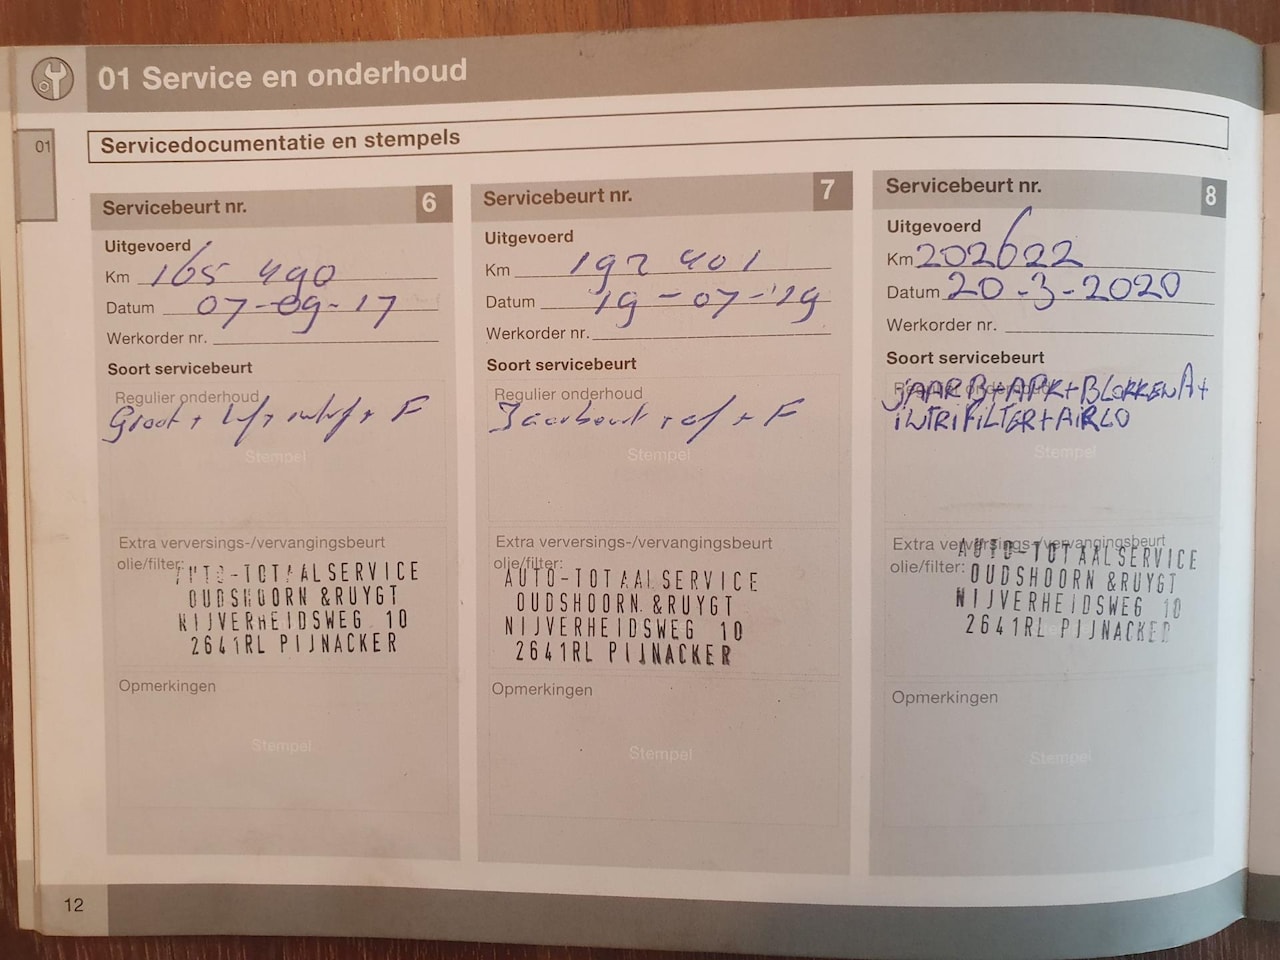 01 Service en onderhoud
01
Servicedocumentatie en stempels
Servicebeurt nr. 6
Uitgevoerd
Km 165 490
Datum 07-09-17
Werkorder nr.
Soort servicebeurt
Regulier onderhoud
Groot + + + F
Stempel
Extra verversings-/vervangingsbeurt
olie/filter:
AUTO-TOTAALSERVICE
OUDSHOORN &RUYGT
NIJVERHEIDSWEG 10
2641RL PIJNACKER
Opmerkingen
Stempel
Servicebeurt nr. 7
Uitgevoerd
Km 192 401
Datum 19-07-'19
Werkorder nr.
Soort servicebeurt
Regulier onderhoud
Jaarbeurt + + F
Stempel
Extra verversings-/vervangingsbeurt
olie/filter:
AUTO-TOTAALSERVICE
OUDSHOORN. &RUYGT
NIJVERHEIDSWEG 10
2641RL PIJNACKER
Opmerkingen
Stempel
Servicebeurt nr. 8
Uitgevoerd
Km 202622
Datum 20-3-2020
Werkorder nr.
Soort servicebeurt
Regulier onderhoud
JAAR B+APK+BLOKKEN A+
INTRIFILTER+AIRCO
Stempel
Extra verversings-/vervangingsbeurt
olie/filter:
AUTO-TOTAALSERVICE
OUDSHOORN &RUYGT
NIJVERHEIDSWEG 10
2641RL PIJNACKER
Opmerkingen
Stempel
12